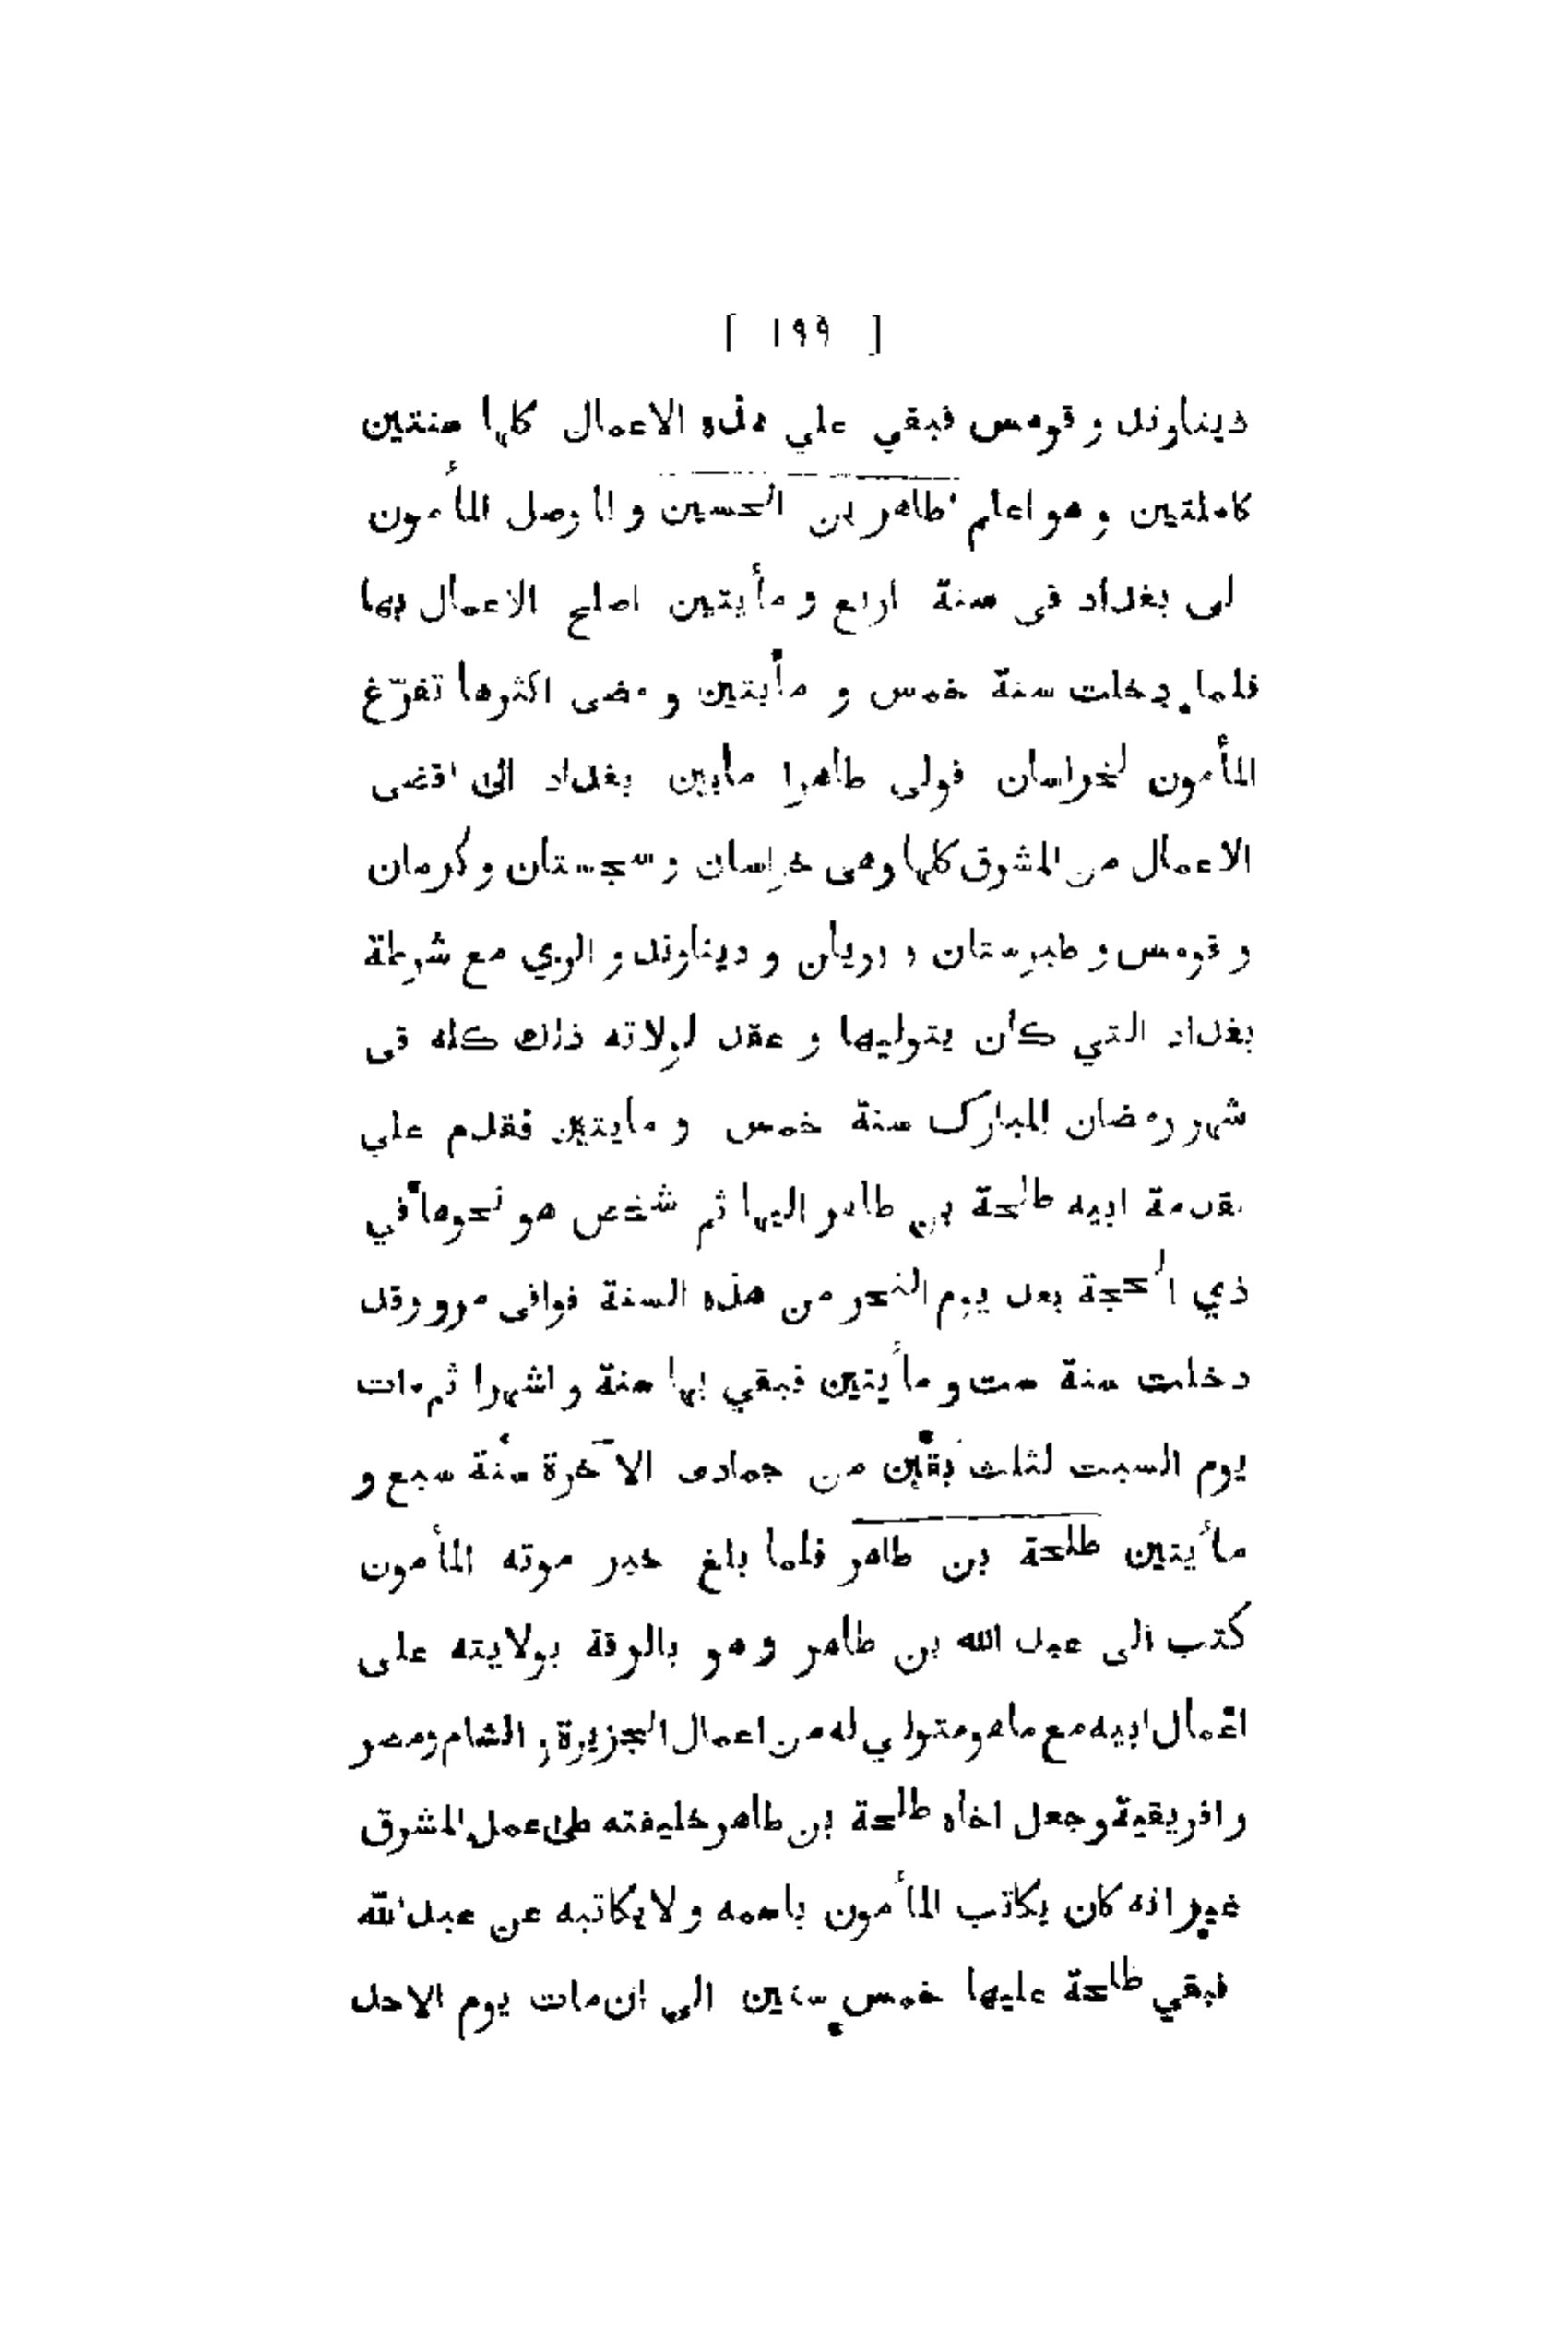 [ ١٩٩ ]
ديناوند و قومس فبقي علي هذه الاعمال كلها سنتين
كاملتين و هو اعلم طاهر بن الحسين و لما وصل المأمون
لى بغداد فى سنة اربع و مأيتين اصلح الاعمال بها
فلما دخلت سنة خمس و مأيتين و مضى اكثرها تفرّغ
المأمون لخراسان فولى طاهرا مابين بغداد الى اقصى
الاعمال من المشرق كلها وهى خراسان و سجستان و كرمان
و قومس و طبرستان و رويان و ديناوند و الري مع شرطة
بغداد التي كان يتوليها و عقد لولاته ذلك كله فى
شهر رمضان المبارك سنة خمس و مايتين فقدم علي
مقدمة ابيه طلحة بن طاهر اليها ثم شخص هو نحوها في
ذي الحجة بعد يوم النحر من هذه السنة فوافى مرو وقد
دخلت سنة ست و مأيتين فبقي بها سنة و اشهرا ثم مات
يوم السبت لثلث بقين من جمادى الآخرة سنة سبع و
مأيتين طلحة بن طاهر فلما بلغ خبر موته المأمون
كتب الى عبد الله بن طاهر و هو بالرقة بولايته على
اعمال ابيه مع ما هو متولي له من اعمال الجزيرة و الشام ومصر
و افريقية و جعل اخاه طلحة بن طاهر خليفته على عمل المشرق
غير انه كان يكاتب المأمون باسمه و لا يكاتبه عن عبد الله
فبقي طلحة عليها خمس سنين الى ان مات يوم الاحد